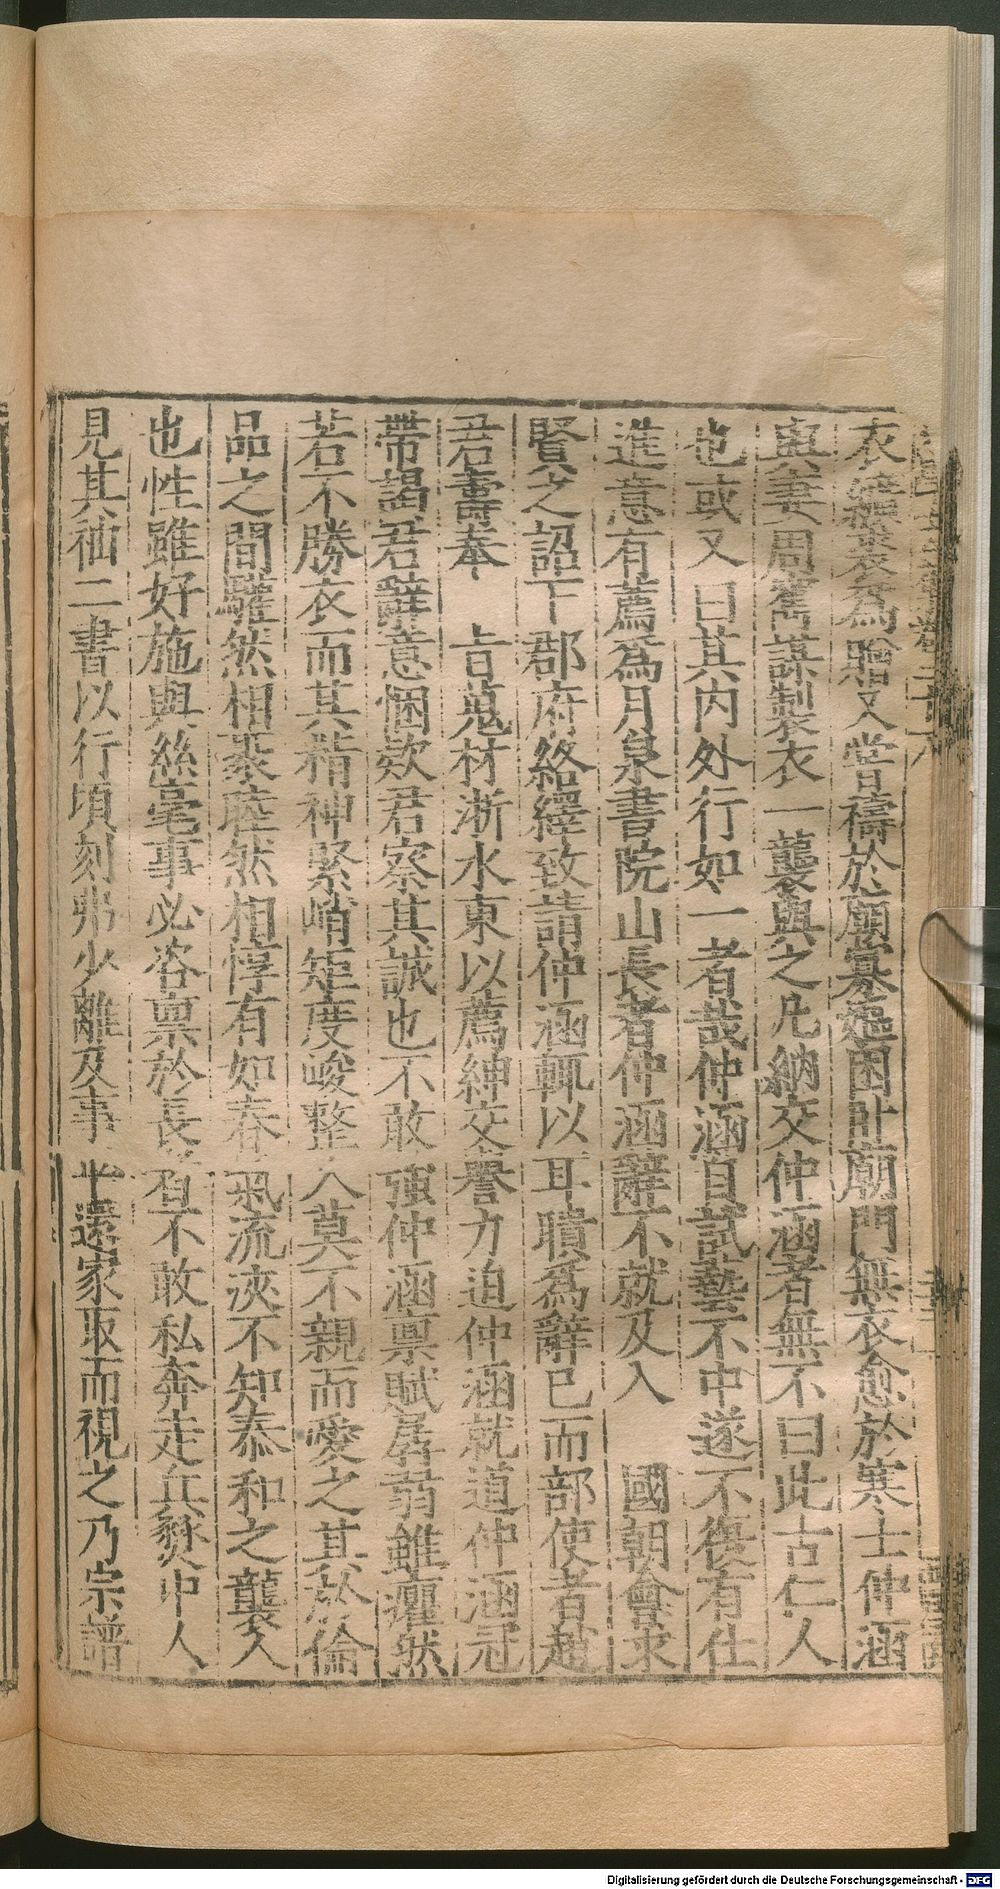 衣無裹爲贈又嘗禱於廟寡嫗困卧廟門無衣愈於寒士仲涵
與妻周舊謀製衣一襲與之凡納交仲涵者無不曰此古仁人
也或又曰其内外行如一者哉仲涵自試藝不中遂不復有仕
進意有薦爲月泉書院山長者仲涵辭不就及入 國朝會求
賢之詔下郡府絡繹致請仲涵輒以耳聵爲辭已而部使者趙
君壽奉 旨蒐材浙水東以薦紳交譽力迫仲涵就道仲涵冠
帶謁君辭意悃欵君察其誠也不敢強仲涵禀賦孱弱雖癯然
若不勝衣而其精神緊峭矩度峻整人莫不親而愛之其於倫
品之間驩然相聚睦然相惇有如春氣流浹不知泰和之襲人
也性雖好施與絲毫事必咨禀於長者不敢私奔走兵燹中人
見其袖二書以行頃刻弗少離及事平還家取而視之乃宗譜
Digitalisierung gefördert durch die Deutsche Forschungsgemeinschaft - DFG